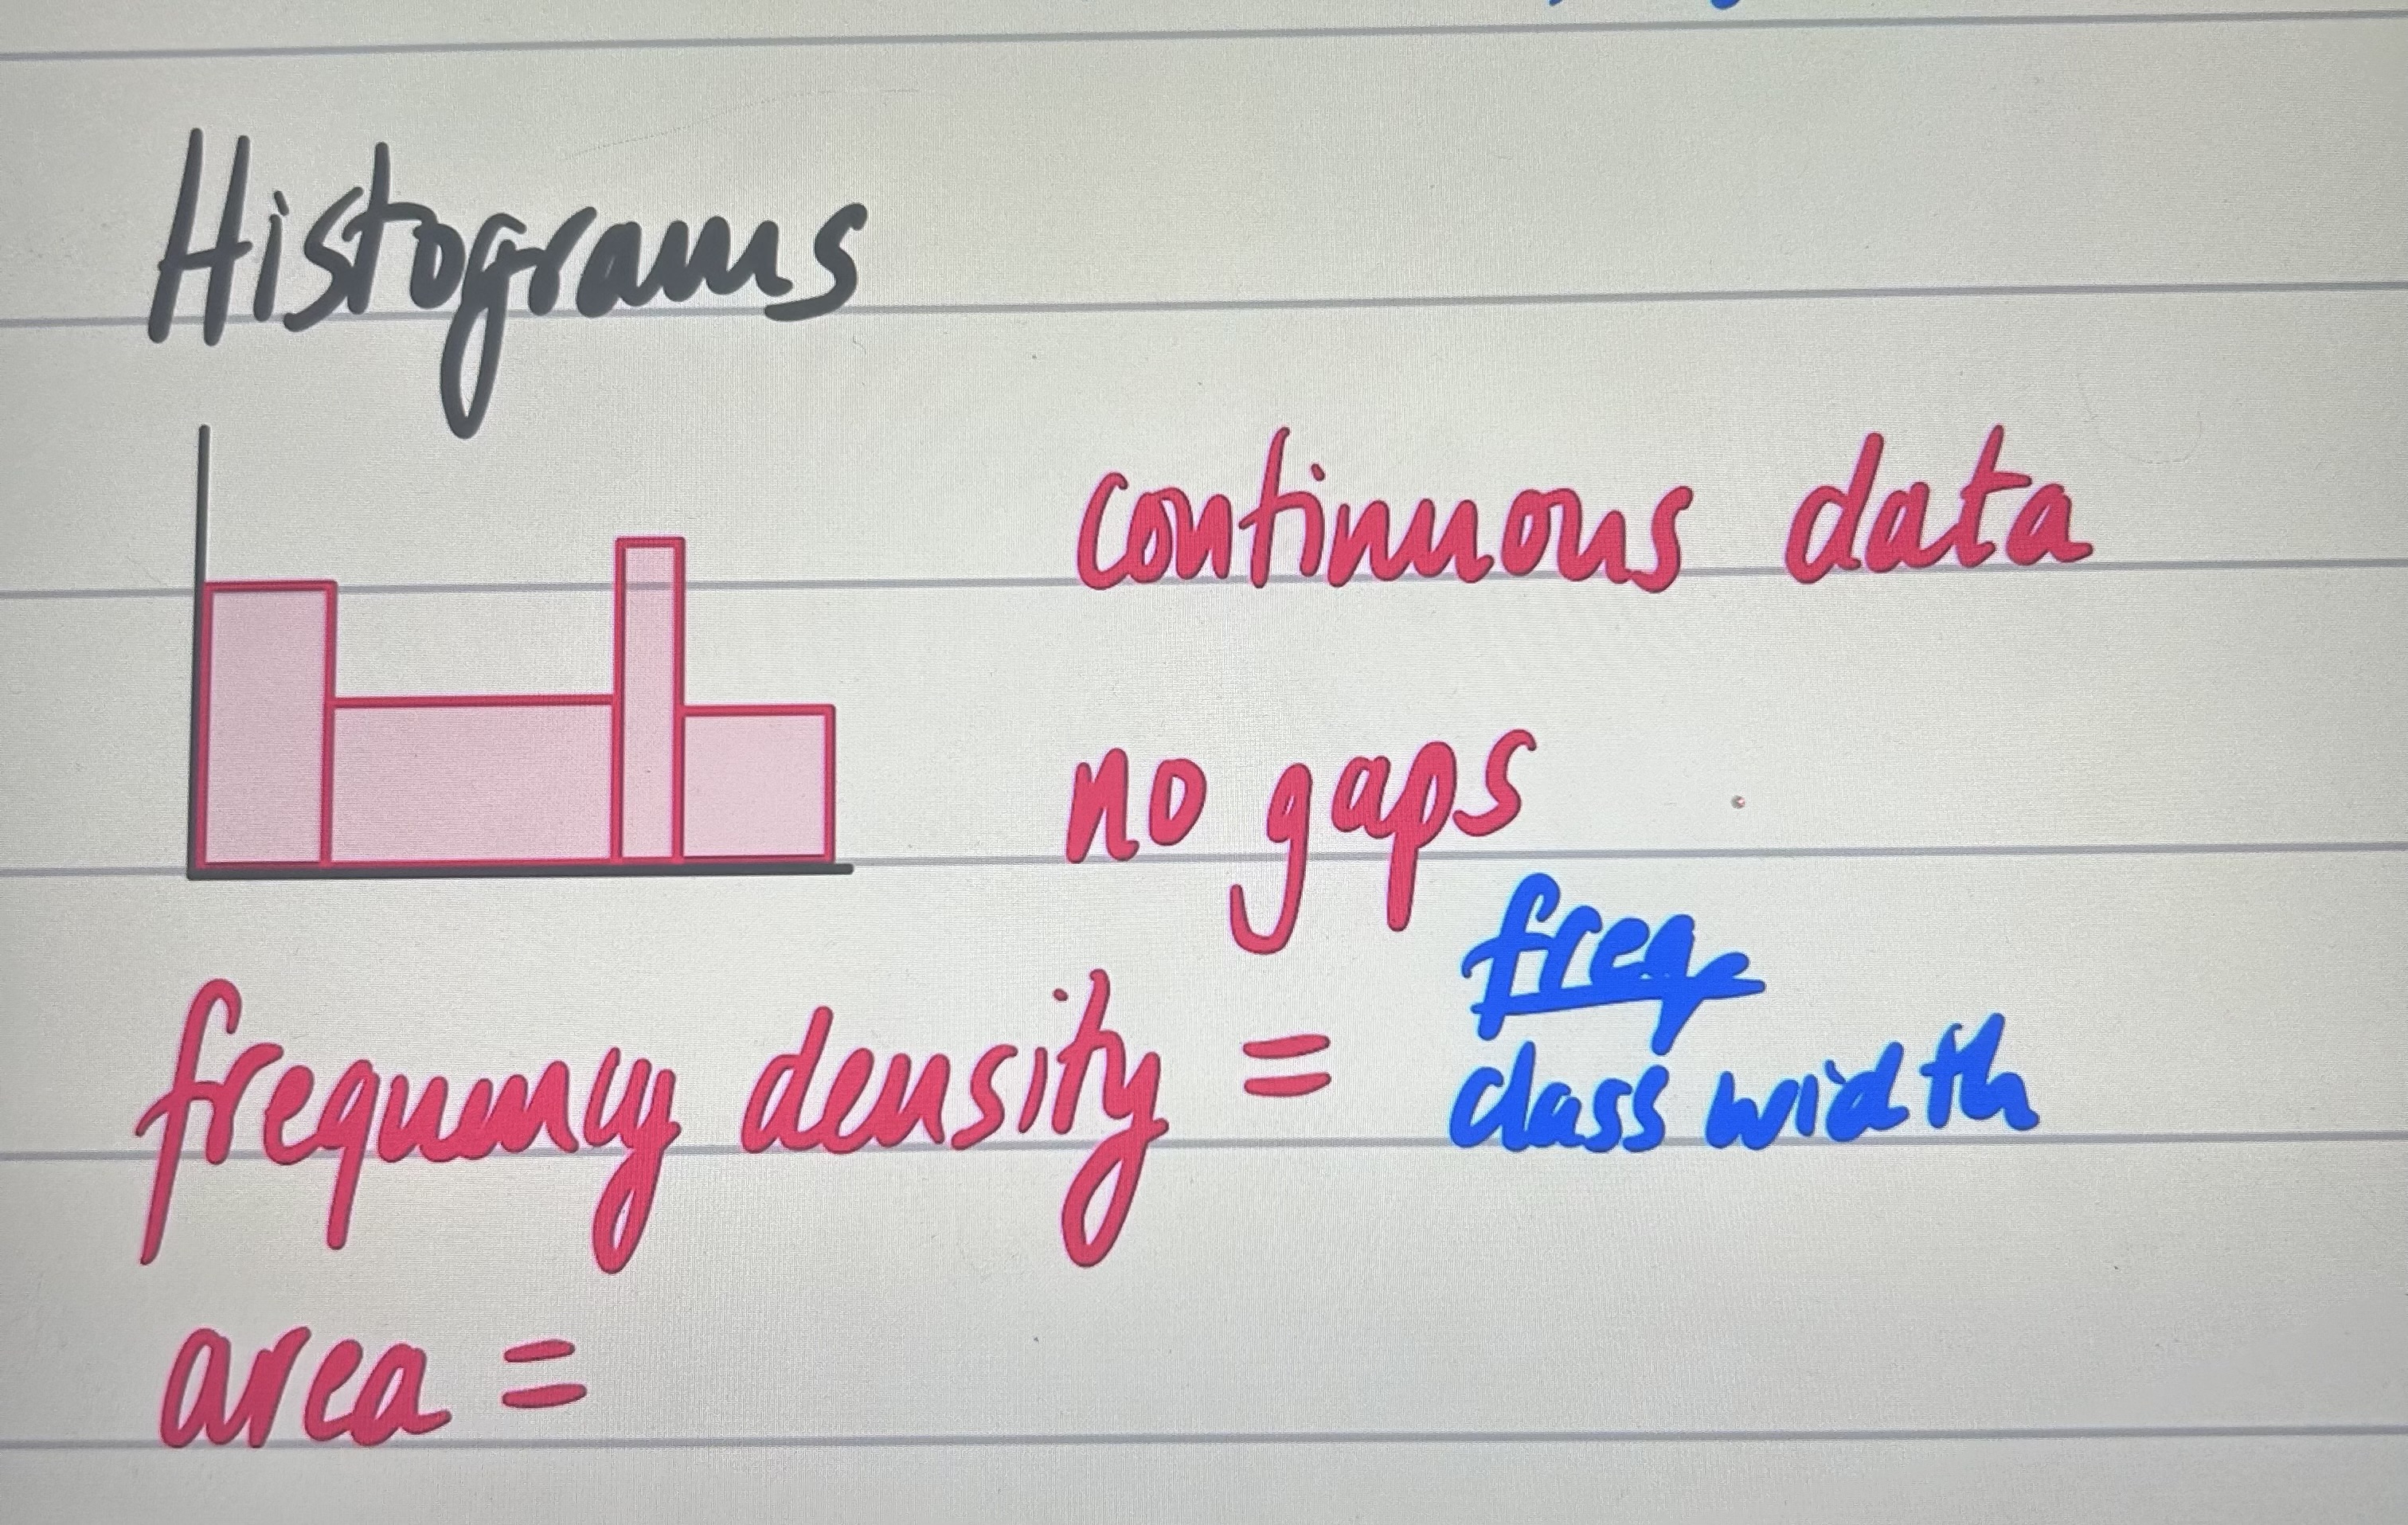 Histograms
continuous data
no gaps
frequency density = freq
class width
area =